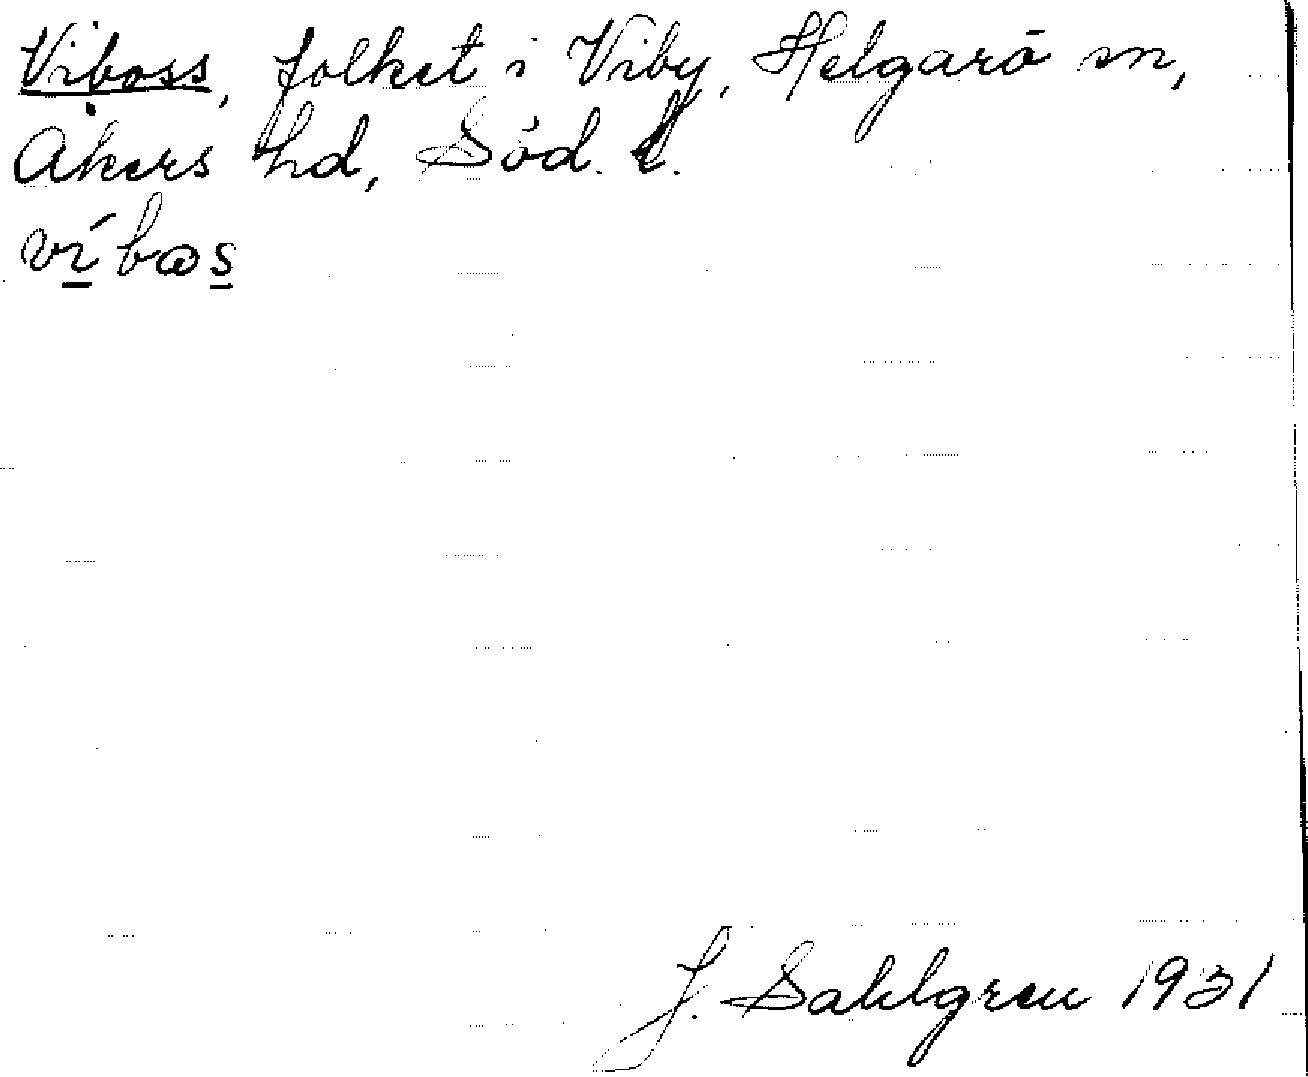 Viboss, folket i Viby, Helgarö sn,
Åkers hd, Söd. l.
víbɷs
J. Sahlgren 1931